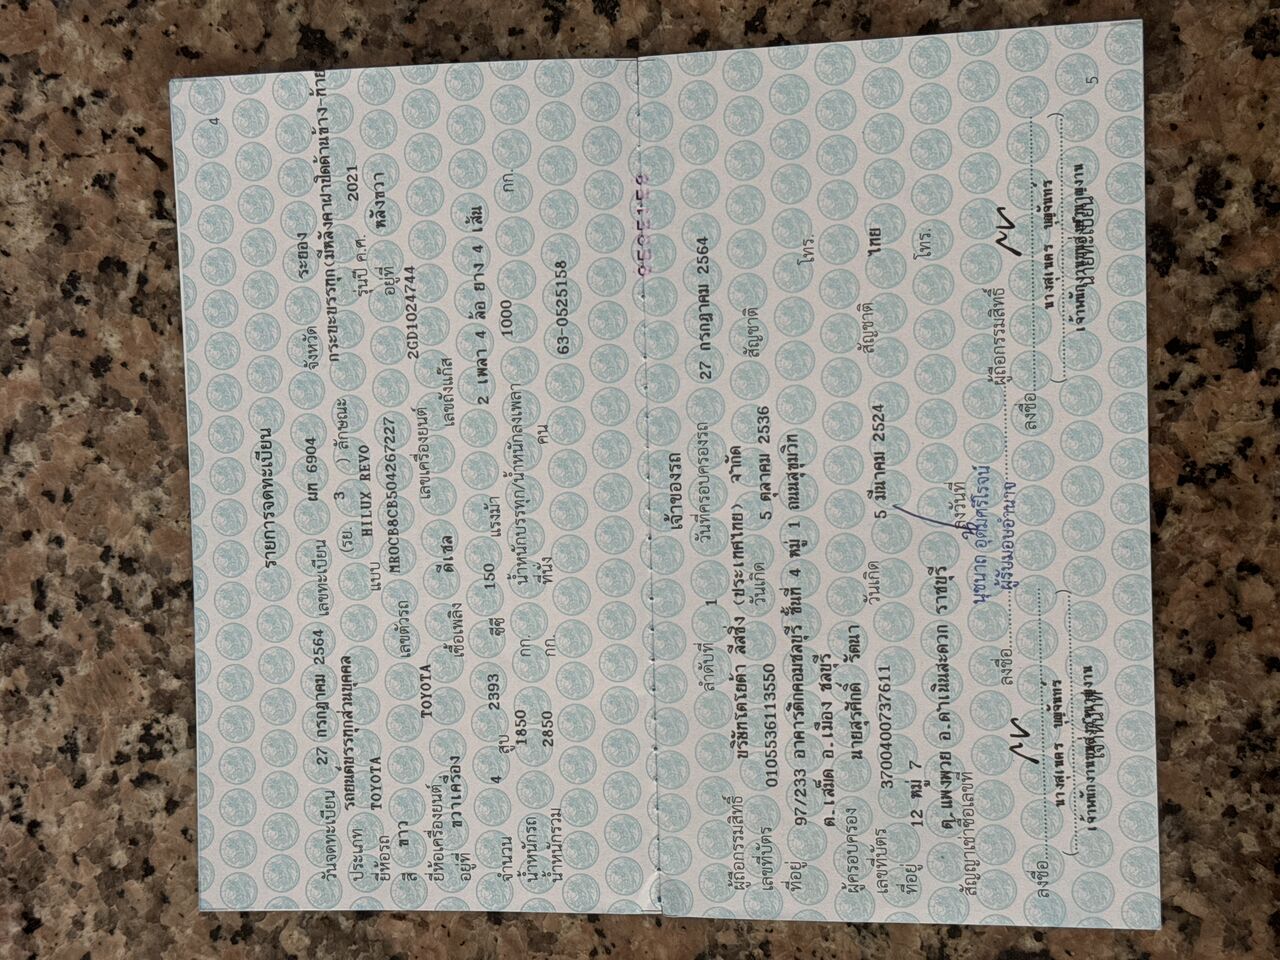 4
รายการจดทะเบียน
วันจดทะเบียน 27 กรกฎาคม 2564 เลขทะเบียน ผก 6904 จังหวัด ระยอง
ประเภท รถยนต์บรรทุกส่วนบุคคล (รย. 3 ) ลักษณะ กระบะบรรทุก(มีหลังคาฝาปิดด้านข้าง-ท้าย
ยี่ห้อรถ TOYOTA แบบ HILUX REVO รุ่นปี ค.ศ. 2021
สี ขาว เลขตัวรถ MR0CB8CB504267227 อยู่ที่ หลังขวา
ยี่ห้อเครื่องยนต์ TOYOTA เลขเครื่องยนต์ 2GD1024744
อยู่ที่ ขวาเครื่อง เชื้อเพลิง ดีเซล เลขถังแก๊ส
จำนวน 4 สูบ 2393 ซีซี 150 แรงม้า 2 เพลา 4 ล้อ ยาง 4 เส้น
น้ำหนักรถ 1850 กก. น้ำหนักบรรทุก/น้ำหนักลงเพลา 1000 กก.
น้ำหนักรวม 2850 กก. ที่นั่ง คน 63-0525158
เจ้าของรถ
ลำดับที่ 1 วันที่ครอบครองรถ 27 กรกฎาคม 2564
ผู้ถือกรรมสิทธิ์ บริษัทโตโยต้า ลีสซิ่ง (ประเทศไทย) จำกัด
เลขที่บัตร 0105536113550 วันเกิด 5 ตุลาคม 2536 สัญชาติ
ที่อยู่ 97/233 อาคารดิกคอมชลบุรี ชั้นที่ 4 หมู่ 1 ถนนสุขุมวิท
ต.เสม็ด อ.เมือง ชลบุรี โทร.
ผู้ครอบครอง นายสุรศักดิ์ รัตนา
เลขที่บัตร 3700400737611 วันเกิด 5 มีนาคม 2524 สัญชาติ ไทย
ที่อยู่ 12 หมู่ 7
ต.แพงพวย อ.ดำเนินสะดวก ราชบุรี โทร.
สัญญาเช่าซื้อเลขที่ ลงวันที่
นุชนาถ อุดมศรีโรจน์
ลงชื่อ ผู้รับมอบอำนาจ ผู้ถือกรรมสิทธิ์
ลงชื่อ ลงชื่อ
( ) ( )
เจ้าหน้าที่ นายทะเบียน
5